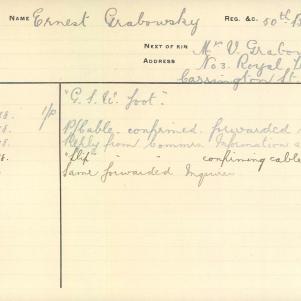 NAME Ernest Grabowsky REG. &C. 50th B
NEXT OF KIN Mr V. Grabow
ADDRESS No 3. Royal
Carrington St.
"G. S. W. foot."
P/Cable confirmed forwarded
Reply from Commrs. Information
"Slip" " - confirming cable
Same forwarded Inquirer